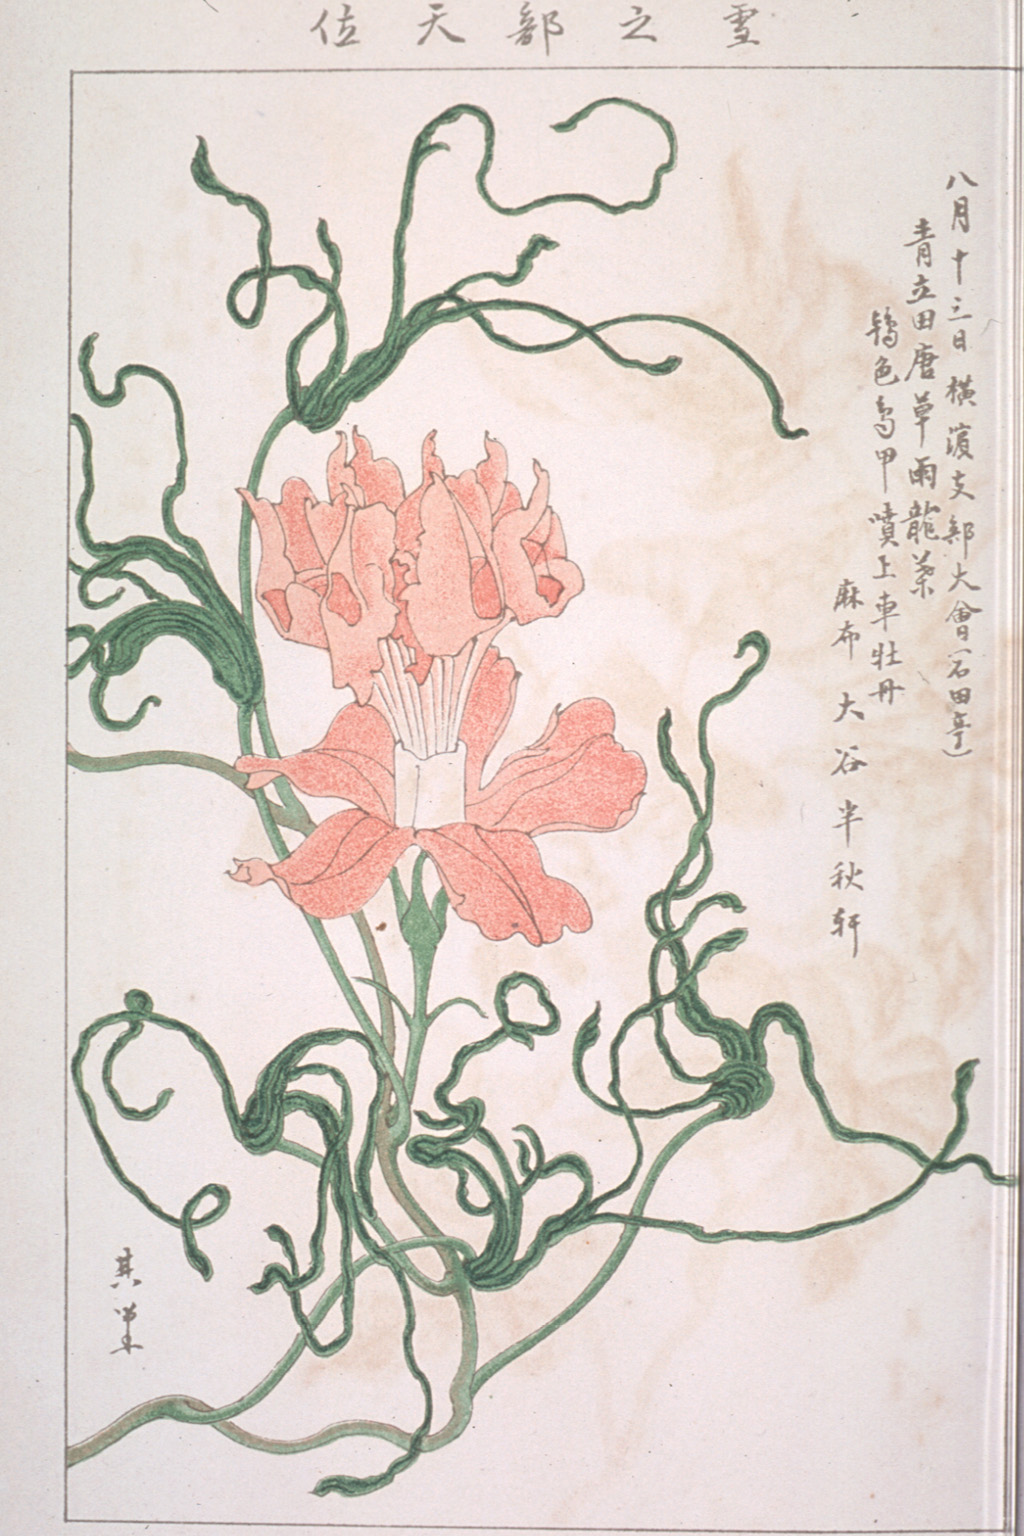 雪之部天位
八月十三日横濱支部大會(石田亭)
青立田唐草雨龍葉
鴇色鳥甲噴上車牡丹
麻布 大谷半秋軒
其峯